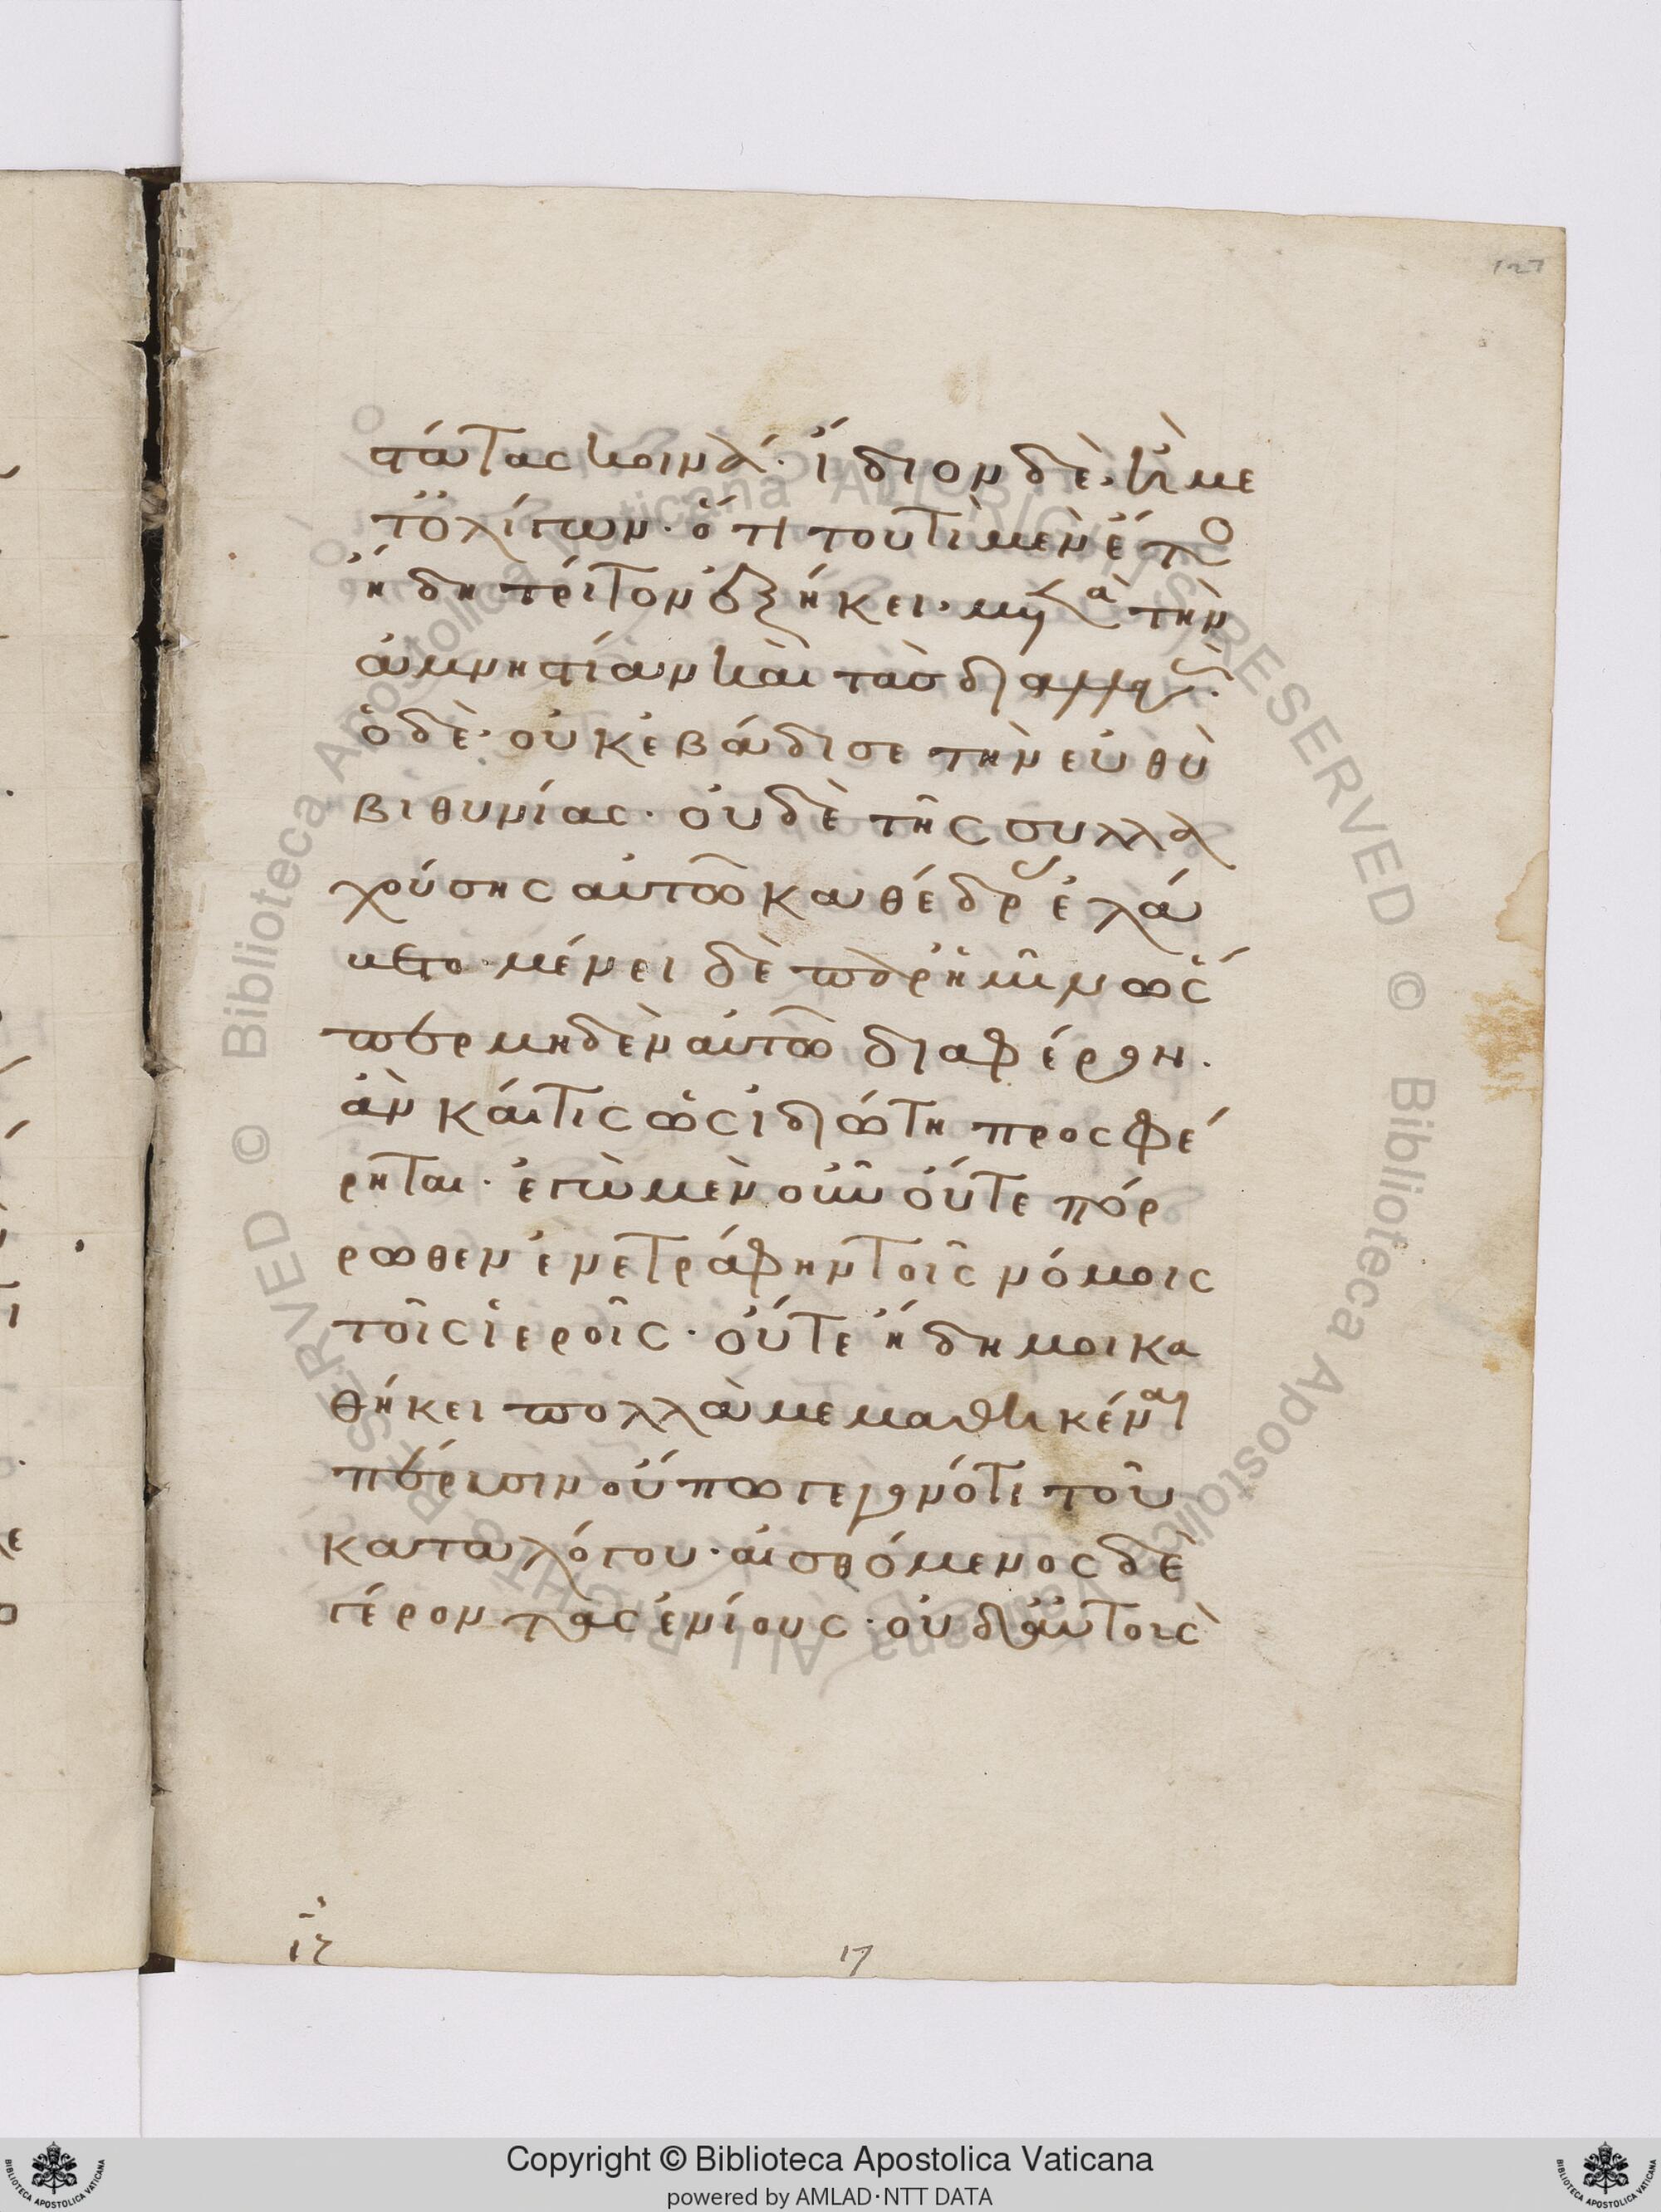 127
στάντας κοινά· ἴδιον δὲ, καὶ με
τ' ὀλίγων· ὅτι τουτὶ μὲν ἔτο
ἤδη τρίτον ἐξήκει· μετὰ τὴν
ἀμνηστίαν καὶ τὰσ διαλλαγ
ὁ δὲ· οὐκ ἐβάδισε τὴν εὐθὺ
βιθυνίας· οὐδὲ τῆς συλλα
χούσης αὐτῶ καθέδρ ἐλά
μένει δὲ παρ' ἡμῖν ὥς
περ μηδὲν αὐτῶ διαφέρον·
ἂν καί τις ὡς ἰδιώτη προσφέ
ρηται· ἐγὼ μὲν οὖν οὔτε πόρ
ρωθεν ἐνετράφην τοῖς νόμοις
τοῖς ἱεροῖς· οὔτε ἤδη μοι κα
θήκει πολλὰ μεμαθηκέναι
πέρυσιν οὔπω γεγονότι τοῦ
καταλόγου· αἰσθόμενος δὲ
γέροντας ἐνίους· οὐδ' αὐτοὶς
ιζ
17
Copyright © Biblioteca Apostolica Vaticana
powered by AMLAD·NTT DATA